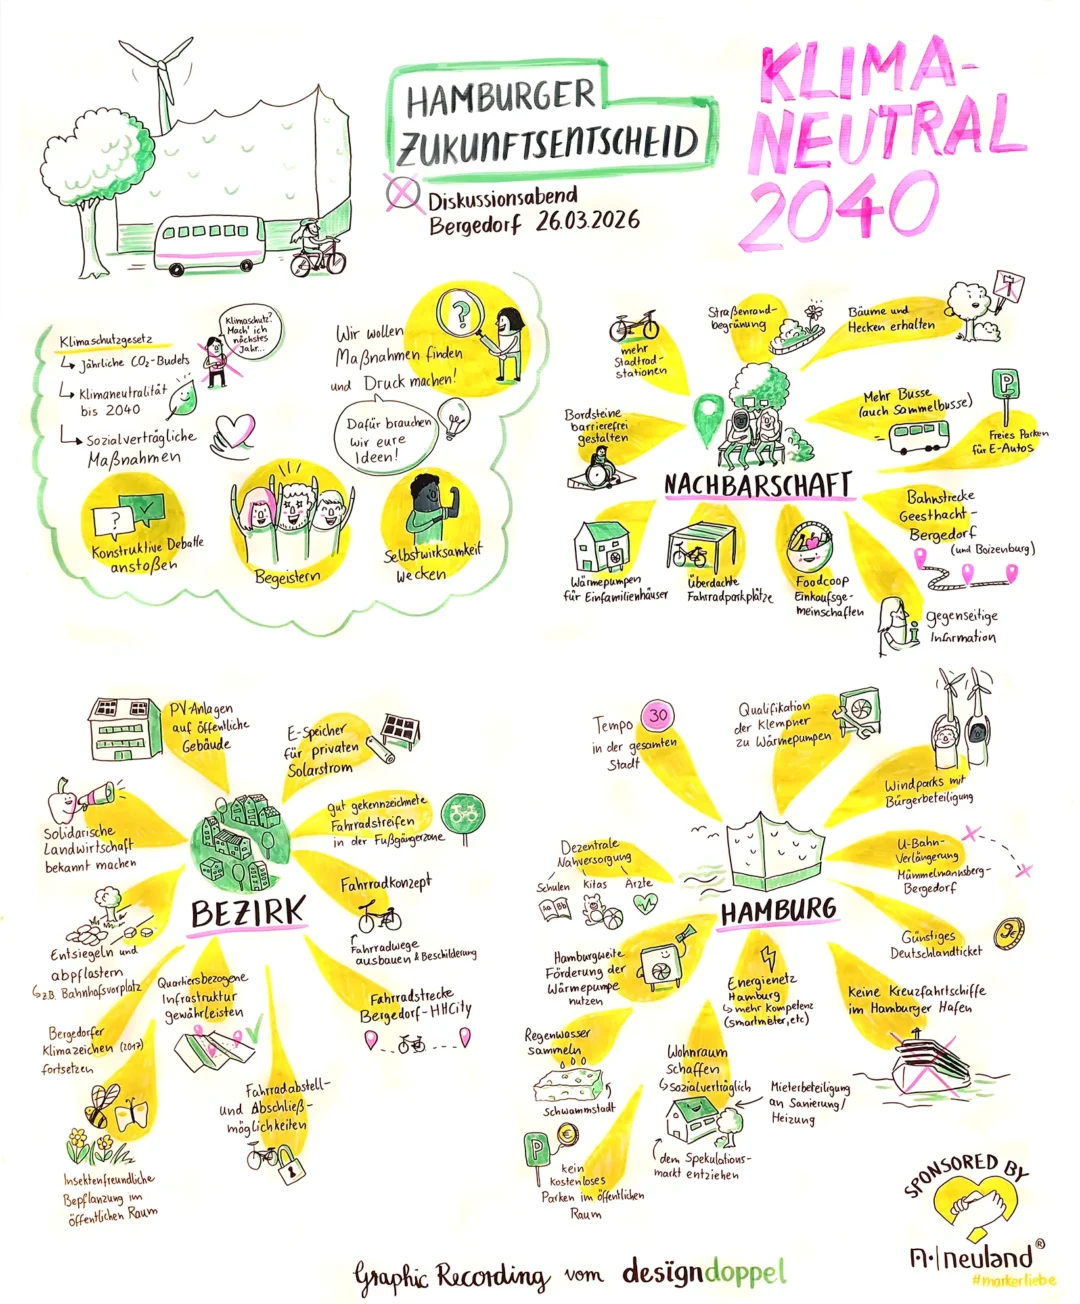 HAMBURGER
ZUKUNFTSENTSCHEID
Diskussionsabend
Bergedorf 26.03.2026
KLIMA-
NEUTRAL
2040
Klimaschutzgesetz
Jährliche CO₂-Budets
Klimaneutralität
bis 2040
Sozialverträgliche
Maßnahmen
Klimaschutz?
Mach' ich
nächstes
Jahr...
Wir wollen
Maßnahmen finden
und Druck machen!
?
Dafür brauchen
wir eure
Ideen!
?
Konstruktive Debatte
anstoßen
Begeistern
Selbstwirksamkeit
wecken
NACHBARSCHAFT
mehr
Stadtrad-
stationen
Straßenrand-
begrünung
Bäume und
Hecken erhalten
Bordsteine
barrierefrei
gestalten
Mehr Busse
(auch Sammelbusse)
P
Freies Parken
für E-Autos
Bahnstrecke
Geesthacht-
Bergedorf
(und Boizenburg)
Wärmepumpen
für Einfamilienhäuser
Überdachte
Fahrradparkplätze
Foodcoop
Einkaufsge-
meinschaften
i
gegenseitige
Information
BEZIRK
PV-Anlagen
auf öffentliche
Gebäude
E-Speicher
für privaten
Solarstrom
Solidarische
Landwirtschaft
bekannt machen
gut gekennzeichnete
Fahrradstreifen
in der Fußgängerzone
Fahrradkonzept
Fahrradwege
ausbauen & Beschilderung
Entsiegeln und
abpflastern
z.B. Bahnhofsvorplatz
Quartiersbezogene
Infrastruktur
gewährleisten
Fahrradstrecke
Bergedorf-HHCity
Bergedorfer
Klimazeichen (2017)
fortsetzen
Fahrradabstell-
und Abschließ-
möglichkeiten
Insektenfreundliche
Bepflanzung im
öffentlichen Raum
HAMBURG
Tempo 30
in der gesamten
Stadt
Qualifikation
der Klempner
zu Wärmepumpen
Windparks mit
Bürgerbeteiligung
Dezentrale
Nahversorgung
Schulen Kitas Ärzte
Aa Bb
U-Bahn-
Verlängerung
Mümmelmannsberg-
Bergedorf
Günstiges
Deutschlandticket
9€
Hamburgweite
Förderung der
Wärmepumpe
nutzen
Energienetz
Hamburg
mehr Kompetenz
(smartmeter, etc)
Keine Kreuzfahrtschiffe
im Hamburger Hafen
Regenwasser
sammeln
Schwammstadt
Wohnraum
schaffen
Sozialverträglich
Mieterbeteiligung
an Sanierung/
Heizung
dem Spekulations-
markt entziehen
P
€
kein
kostenloses
Parken im öffentlichen
Raum
SPONSORED BY
neuland®
#markerliebe
Graphic Recording vom designdoppel